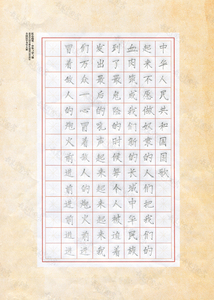 中华人民共和国国歌
起来不愿做奴隶的人们把我们的
血肉筑成我们新的长城中华民族
到了最危险的时候每个人被迫着
发出最后的吼声起来起来起来我
们万众一心冒着敌人的炮火前进
冒着敌人的炮火前进前进前进进